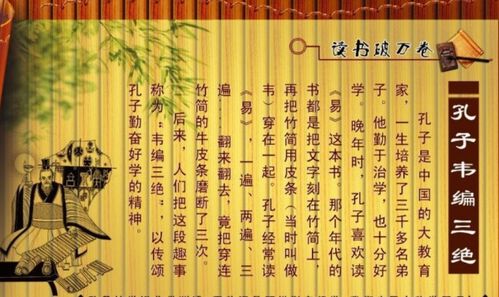 读书破万卷
孔子韦编三绝
孔子是中国的大教育
家，一生培养了三千多名弟
子。他勤于治学，也十分好
学。晚年时，孔子喜欢读
《易》这本书。那个年代的
书都是把文字刻在竹简上，
再把竹简用皮条（当时叫做
韦）穿在一起。孔子经常读
《易》，一遍、两遍、三
遍…翻来翻去，竟把穿连
竹简的牛皮条磨断了三次。
后来，人们把这段趣事
称为："韦编三绝"，以传颂
孔子勤奋好学的精神。